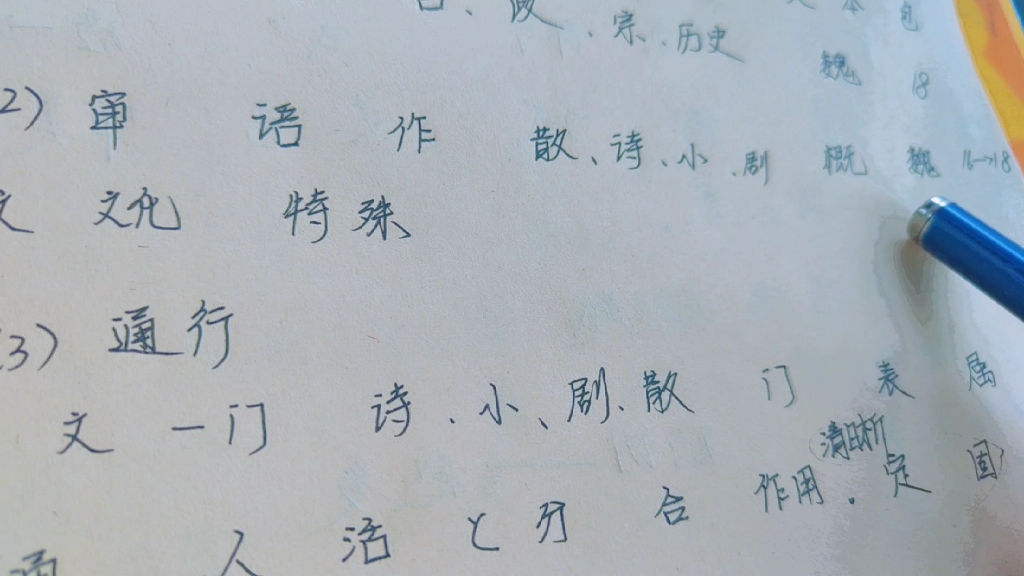 、宗、历史
魏 18
2) 审 语 作 散、诗、小、剧 概 魏 16→18
文 文化 特殊
(3) 通行
文 一门 诗、小、剧、散 门 表 属
清晰
人 活 分 合 作用。定 固